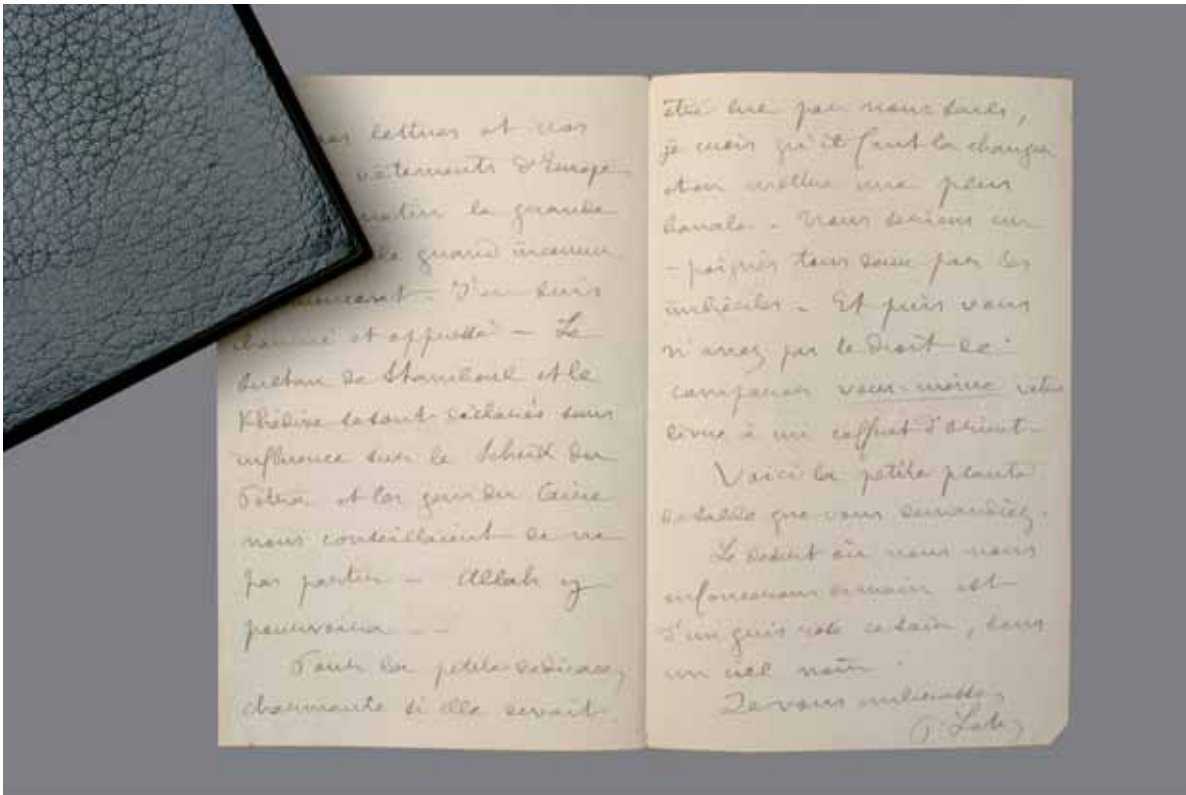 mes lettres et mes
vêtements d'Europe.
matin le grand
le grand inconnu
commencent. J'en suis
charmé et oppressé — Le
Sultan de Stamboul et le
Khédive se sont déclarés sans
influence sur le Scheik de
Pétra et les gens du Caire
nous conseillaient de ne
pas partir — Allah y
pourvoira — —
Pour la petite dédicace,
charmante si elle devait
être lue par nous seuls,
je crois qu'il faut la changer
et en mettre une plus
banale. Nous serions em
-poignés tous deux par les
imbéciles. Et puis vous
n'avez pas le droit de
comparer vous-même votre
livre à un coffret d'Orient.
Voici la petite plante
de sable que vous demandiez.
Le désert où nous nous
enfoncerons demain est
d'un gris rose ce soir, sous
un ciel noir.
Je vous embrasse,
P. Loti